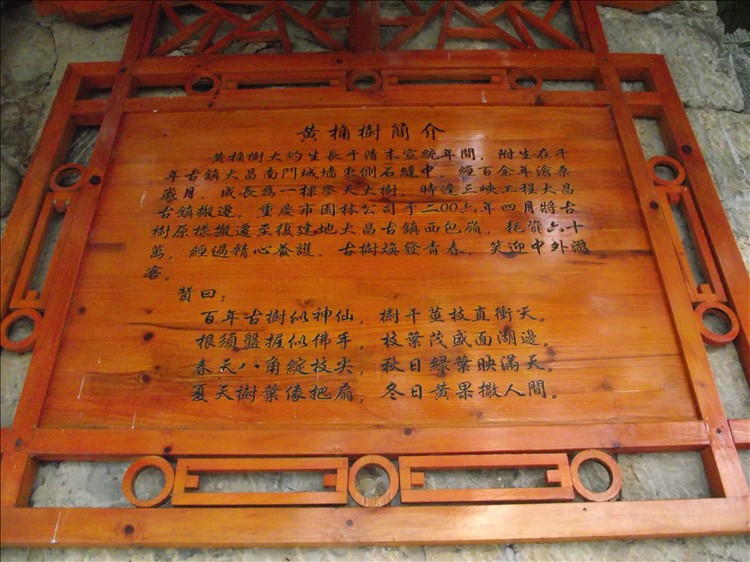 黄桷樹簡介
黄桷樹大約生長于晴末宣統年間，附生在千
年古鎮大昌南門城墻東側石縫中，經百余年滄桑
歲月，成長為一棵參天大樹，時逢三峽工程大昌
古鎮搬遷，重慶市園林公司于二00六年四月將古
樹原樣搬遷至復建地大昌古鎮西包嶺，耗資六十
萬。經過精心養護，古樹焕發青春，笑迎中外游
客。
贊曰：
百年古樹似神仙，樹干莖枝直衝天。
根須盤握似佛手，枝葉茂盛面湖邊。
春天八角綻枝尖，秋日緑葉映滿天。
夏天樹葉像把扇，冬日黄果撒人間。